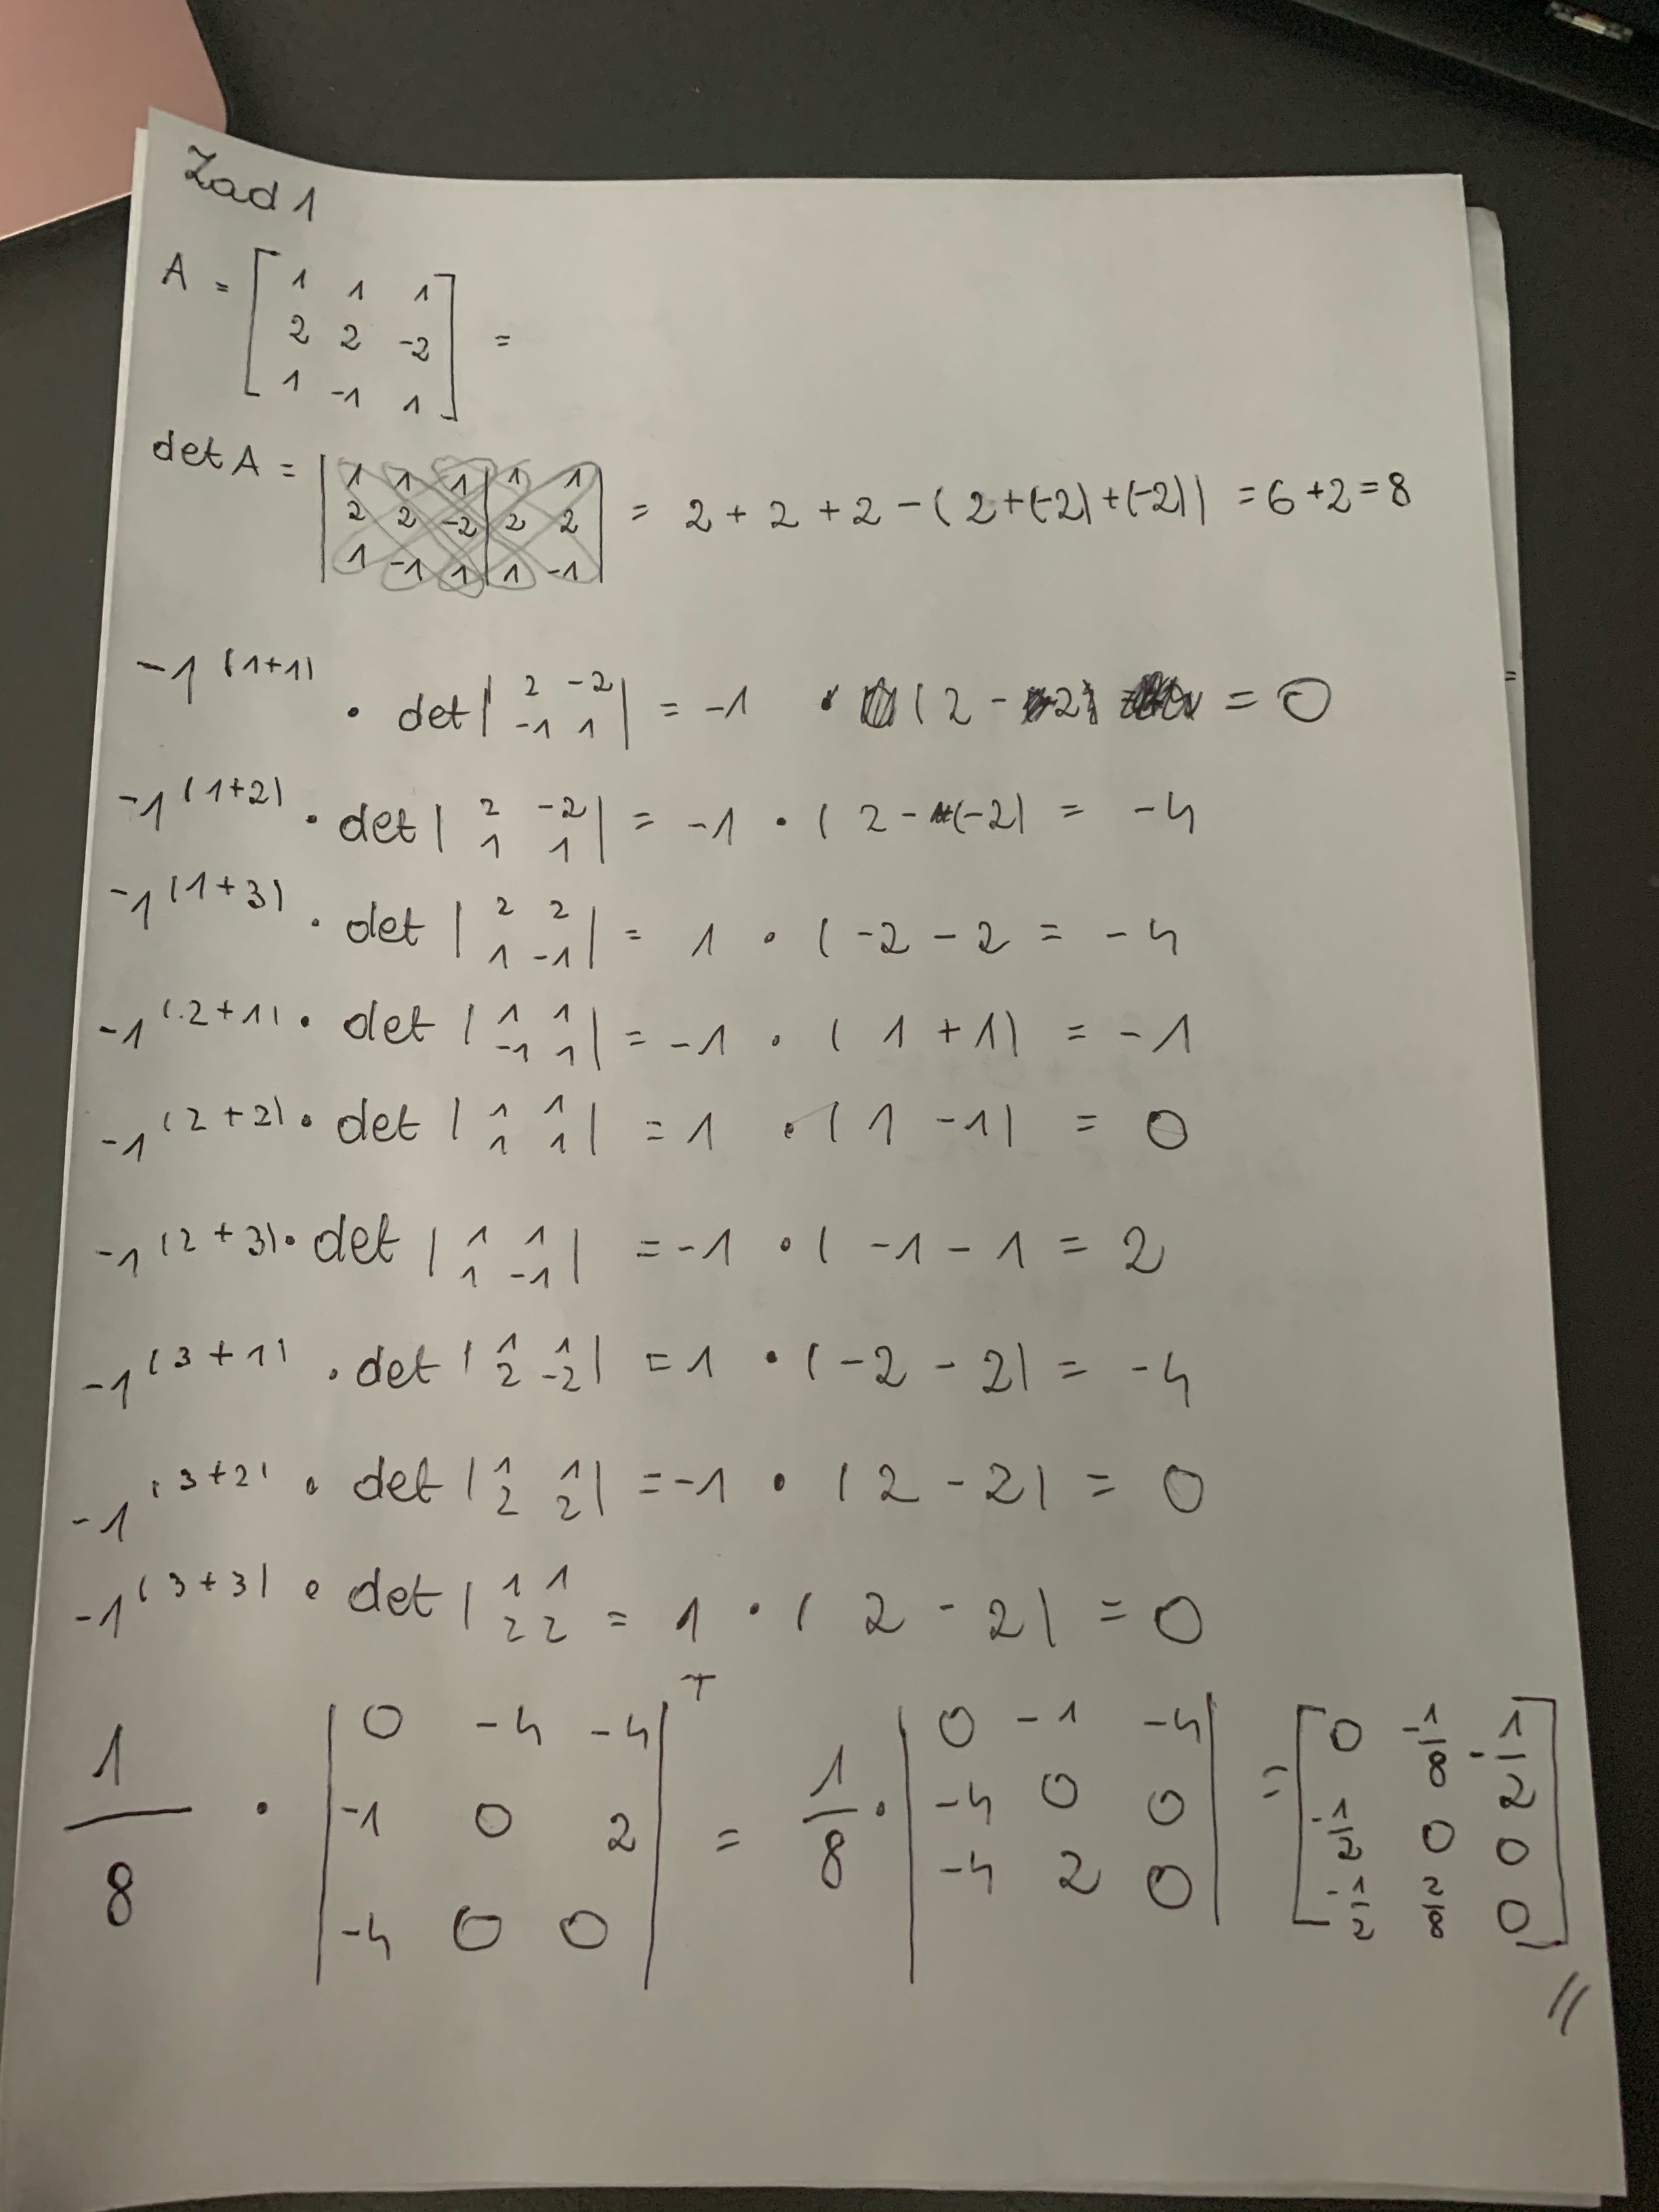 Zad 1
A = [ 1 1 1
2 2 -2
1 -1 1 ] =
det A = | 1 1 1 | 1 1 |
2 2 -2 | 2 2
1 -1 1 | 1 -1 = 2 + 2 + 2 - ( 2 + (-2) + (-2)) = 6 + 2 = 8
-1^(1+1) · det | 2 -2
-1 1 | = -1 · ( 2 - 2) = 0
-1^(1+2) · det | 2 -2
1 1 | = -1 · ( 2 - (-2) = -4
-1^(1+3) · det | 2 2
1 -1 | = 1 · ( -2 - 2 = -4
-1^(2+1) · det | 1 1
-1 1 | = -1 · ( 1 + 1) = -1
-1^(2+2) · det | 1 1
1 1 | = 1 · ( 1 - 1) = 0
-1^(2+3) · det | 1 1
1 -1 | = -1 · ( -1 - 1 = 2
-1^(3+1) · det | 1 1
2 -2 | = 1 · ( -2 - 2) = -4
-1^(3+2) · det | 1 1
2 2 | = -1 · ( 2 - 2) = 0
-1^(3+3) · det | 1 1
2 2 = 1 · ( 2 - 2) = 0
1/8 · | 0 -4 -4
-1 0 2
-4 0 0 |^T = 1/8 · | 0 -1 -4
-4 0 0
-4 2 0 | = [ 0 -1/8 -1/2
-1/2 0 0
-1/2 2/8 0 ]